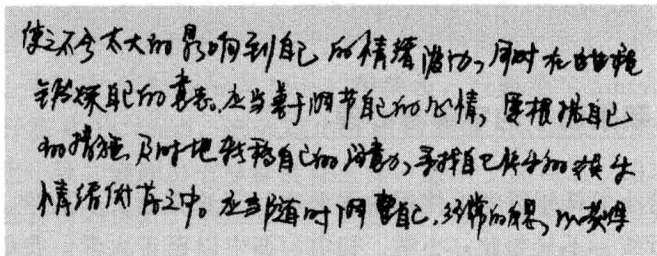 使之不会太大的影响到自己的情绪波动,同时在曲
锻炼自己的意志。应当善于调节自己的心情,要根据自己
的情绪及时地转移自己的注意力,寻找自己快乐的
情绪付存之中。应当随时调整自己,经常的反思,以获得